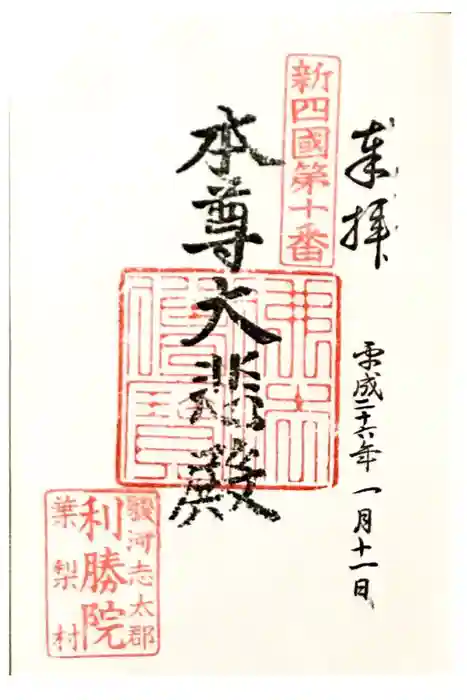 奉拝
平成二十六年一月十一日
新四國第十番
本尊大悲殿
駿河志太郡
利勝院
葉梨村